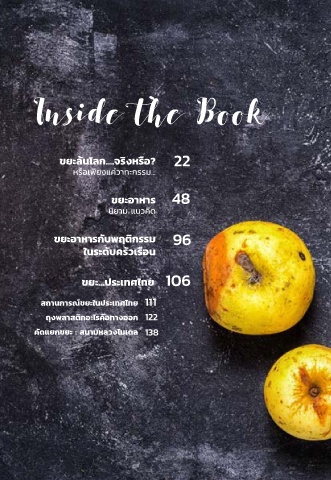 Inside the Book
ขยะล้นโลก...จริงหรือ? 22
หรือเพียงแค่วาทะกรรม...
ขยะอาหาร 48
นิยาม แนวคิด
ขยะอาหารกับพฤติกรรม 96
ในระดับครัวเรือน
ขยะ...ประเทศไทย 106
สถานการณ์ขยะในประเทศไทย 111
ถุงพลาสติกอะไรคือทางออก 122
คัดแยกขยะ : สนามหลวงโมเดล 138